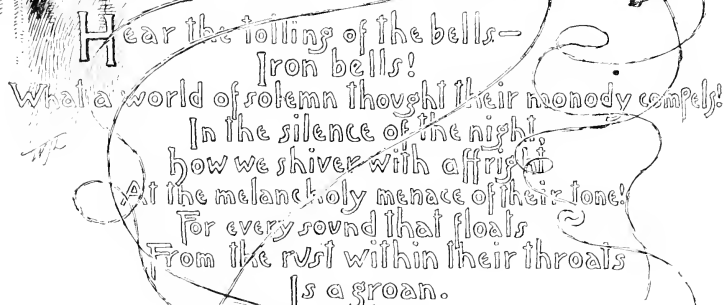 Hear the tolling of the bells—
Iron bells!
What a world of solemn thought their monody compels!
In the silence of the night,
how we shiver with affright
At the melancholy menace of their tone!
For every sound that floats
From the rust within their throats
Is a groan.